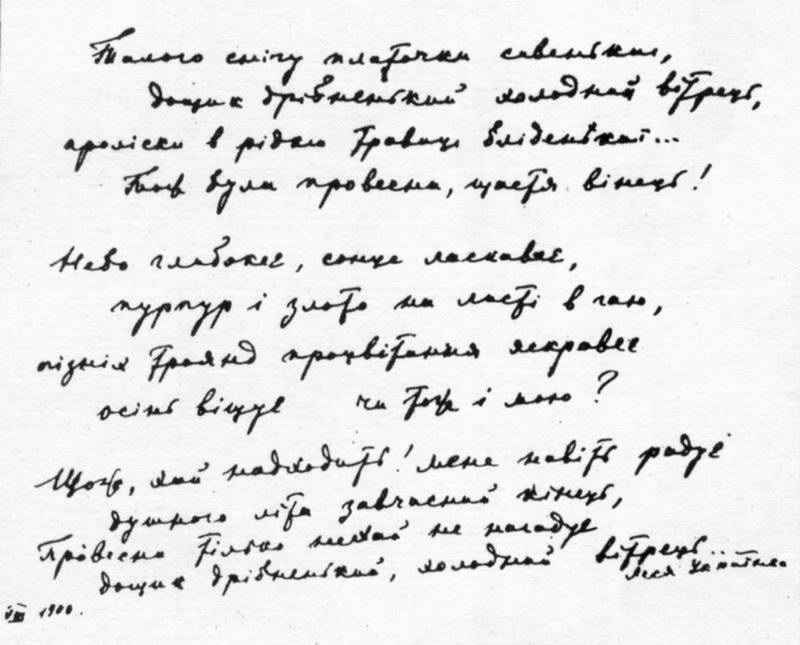 Талого снігу платочки сивенькиї,
дощик дрібненький холодний вітрець,
проліски в рідкій травиці бліденькиї...
Тож була провесна, щастя вінець!
Небо глибокеє, сонце ласкавеє,
пурпур і злото на листі в гаю,
пізніх троянд процвітання яскравеє
осінь віщує чи тож і мою?
Щож, хай надходить! мене навіть радує
душного літа завчасний кінець,
Провесни тілько нехай не нагадує
дощик дрібненький, холодний вітрець...
Леся Українка
VIII 1900.